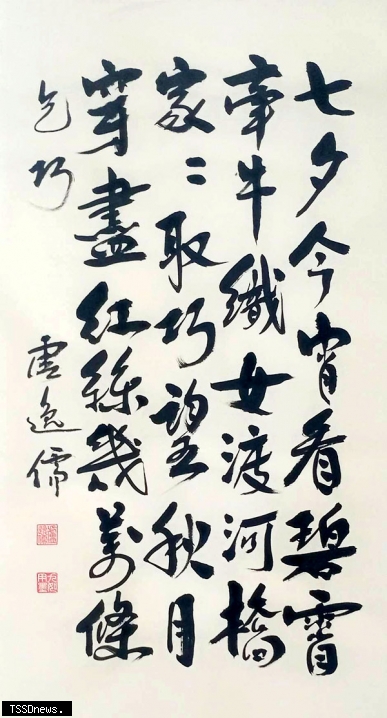 七夕今宵看碧霄
牽牛織女渡河橋
家〻取巧望秋月
穿盡紅絲幾萬條
乞巧
逸儒
TSSDnews.